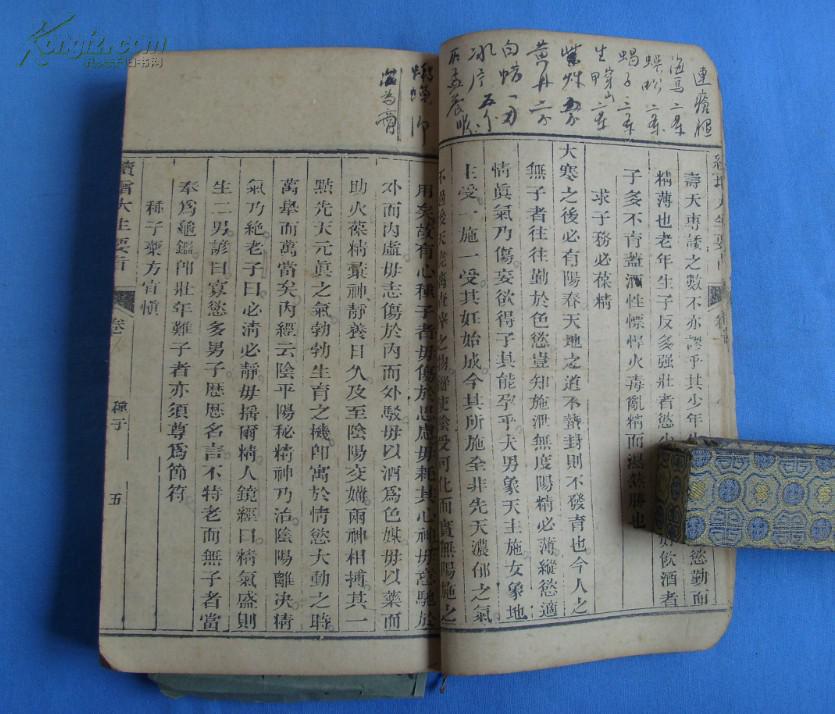 Kongfz.com
孔夫子旧书网
連瘡腿
海馬 二条
蜈蚣 二条
蝎子 三条
生甲 二条
紫珠 五分
黃丹 二分
白蜡 一刃
冰片 五分
壽夭專諉之數不亦謬乎其少年
慾勤而
精薄也老年生子反多强壯者慾少
好飲酒者
子多不育蓋酒性慓悍火毒亂精而濕熱勝也
求子務必葆精
大寒之後必有陽春天地之道不蟄封則不發育也今人之
無子者往往勤於色慾豈知施泄無度陽精必薄縱慾適
情眞氣乃傷妄欲得子其能孕乎夫男象天主施女象地
主受一施一受其妊始成今其所施全非先天濃郁之氣
不過後天
之物縱使陰受可化而實無陽施之
用矣故有心種子者毋傷於思慮毋耗其心神毋意馳於
外而內虛毋志傷於內而外駁毋以酒爲色媒毋以藥而
助火葆精彙神靜養日久及至陰陽交媾兩神相搏其一
點先天元眞之氣勃勃生育之機卽寓於情慾大動之時
萬舉而萬當矣內經云陰平陽秘精神乃治陰陽離決精
氣乃絶老子曰必清必靜毋搖爾精人鏡經曰精氣盛則
生二男諺曰寡慾多男子歷歷名言不特老而無子者當
奉爲龜鑑卽壯年難子者亦須尊爲箇符
種子藥方宜愼
續增大生要旨
卷
種子
五